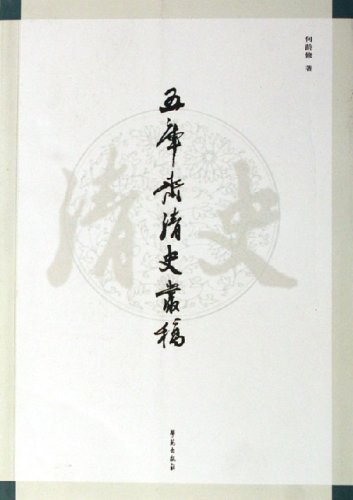 何齡修 著
五庫齋清史叢稿
清史
學苑出版社